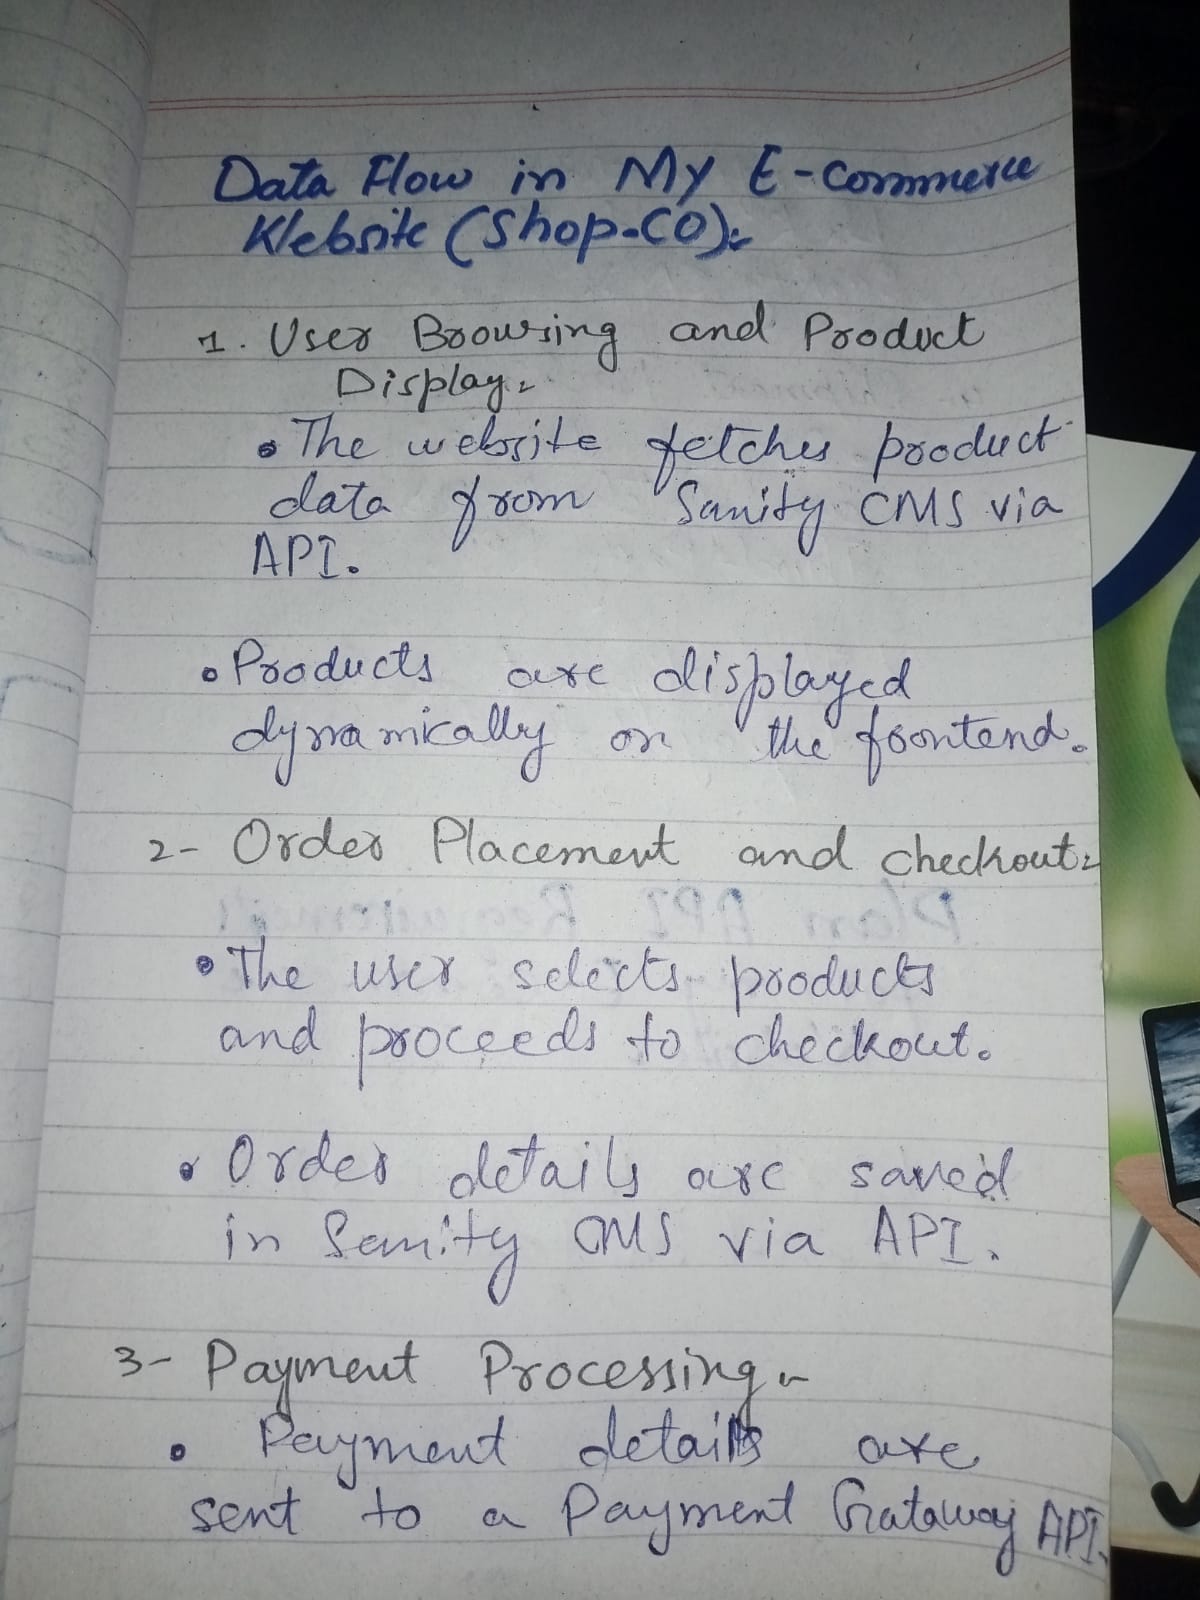 Data Flow in My E-Commerce
Website (Shop.CO):
1. User Browsing and Product
Display:
• The website fetches product
data from Sanity CMS via
API.
• Products are displayed
dynamically on the frontend.
2- Order Placement and checkout:
• The user selects products
and proceeds to checkout.
• Order details are saved
in Sanity CMS via API.
3- Payment Processing:
• Payment details are
sent to a Payment Gateway API.